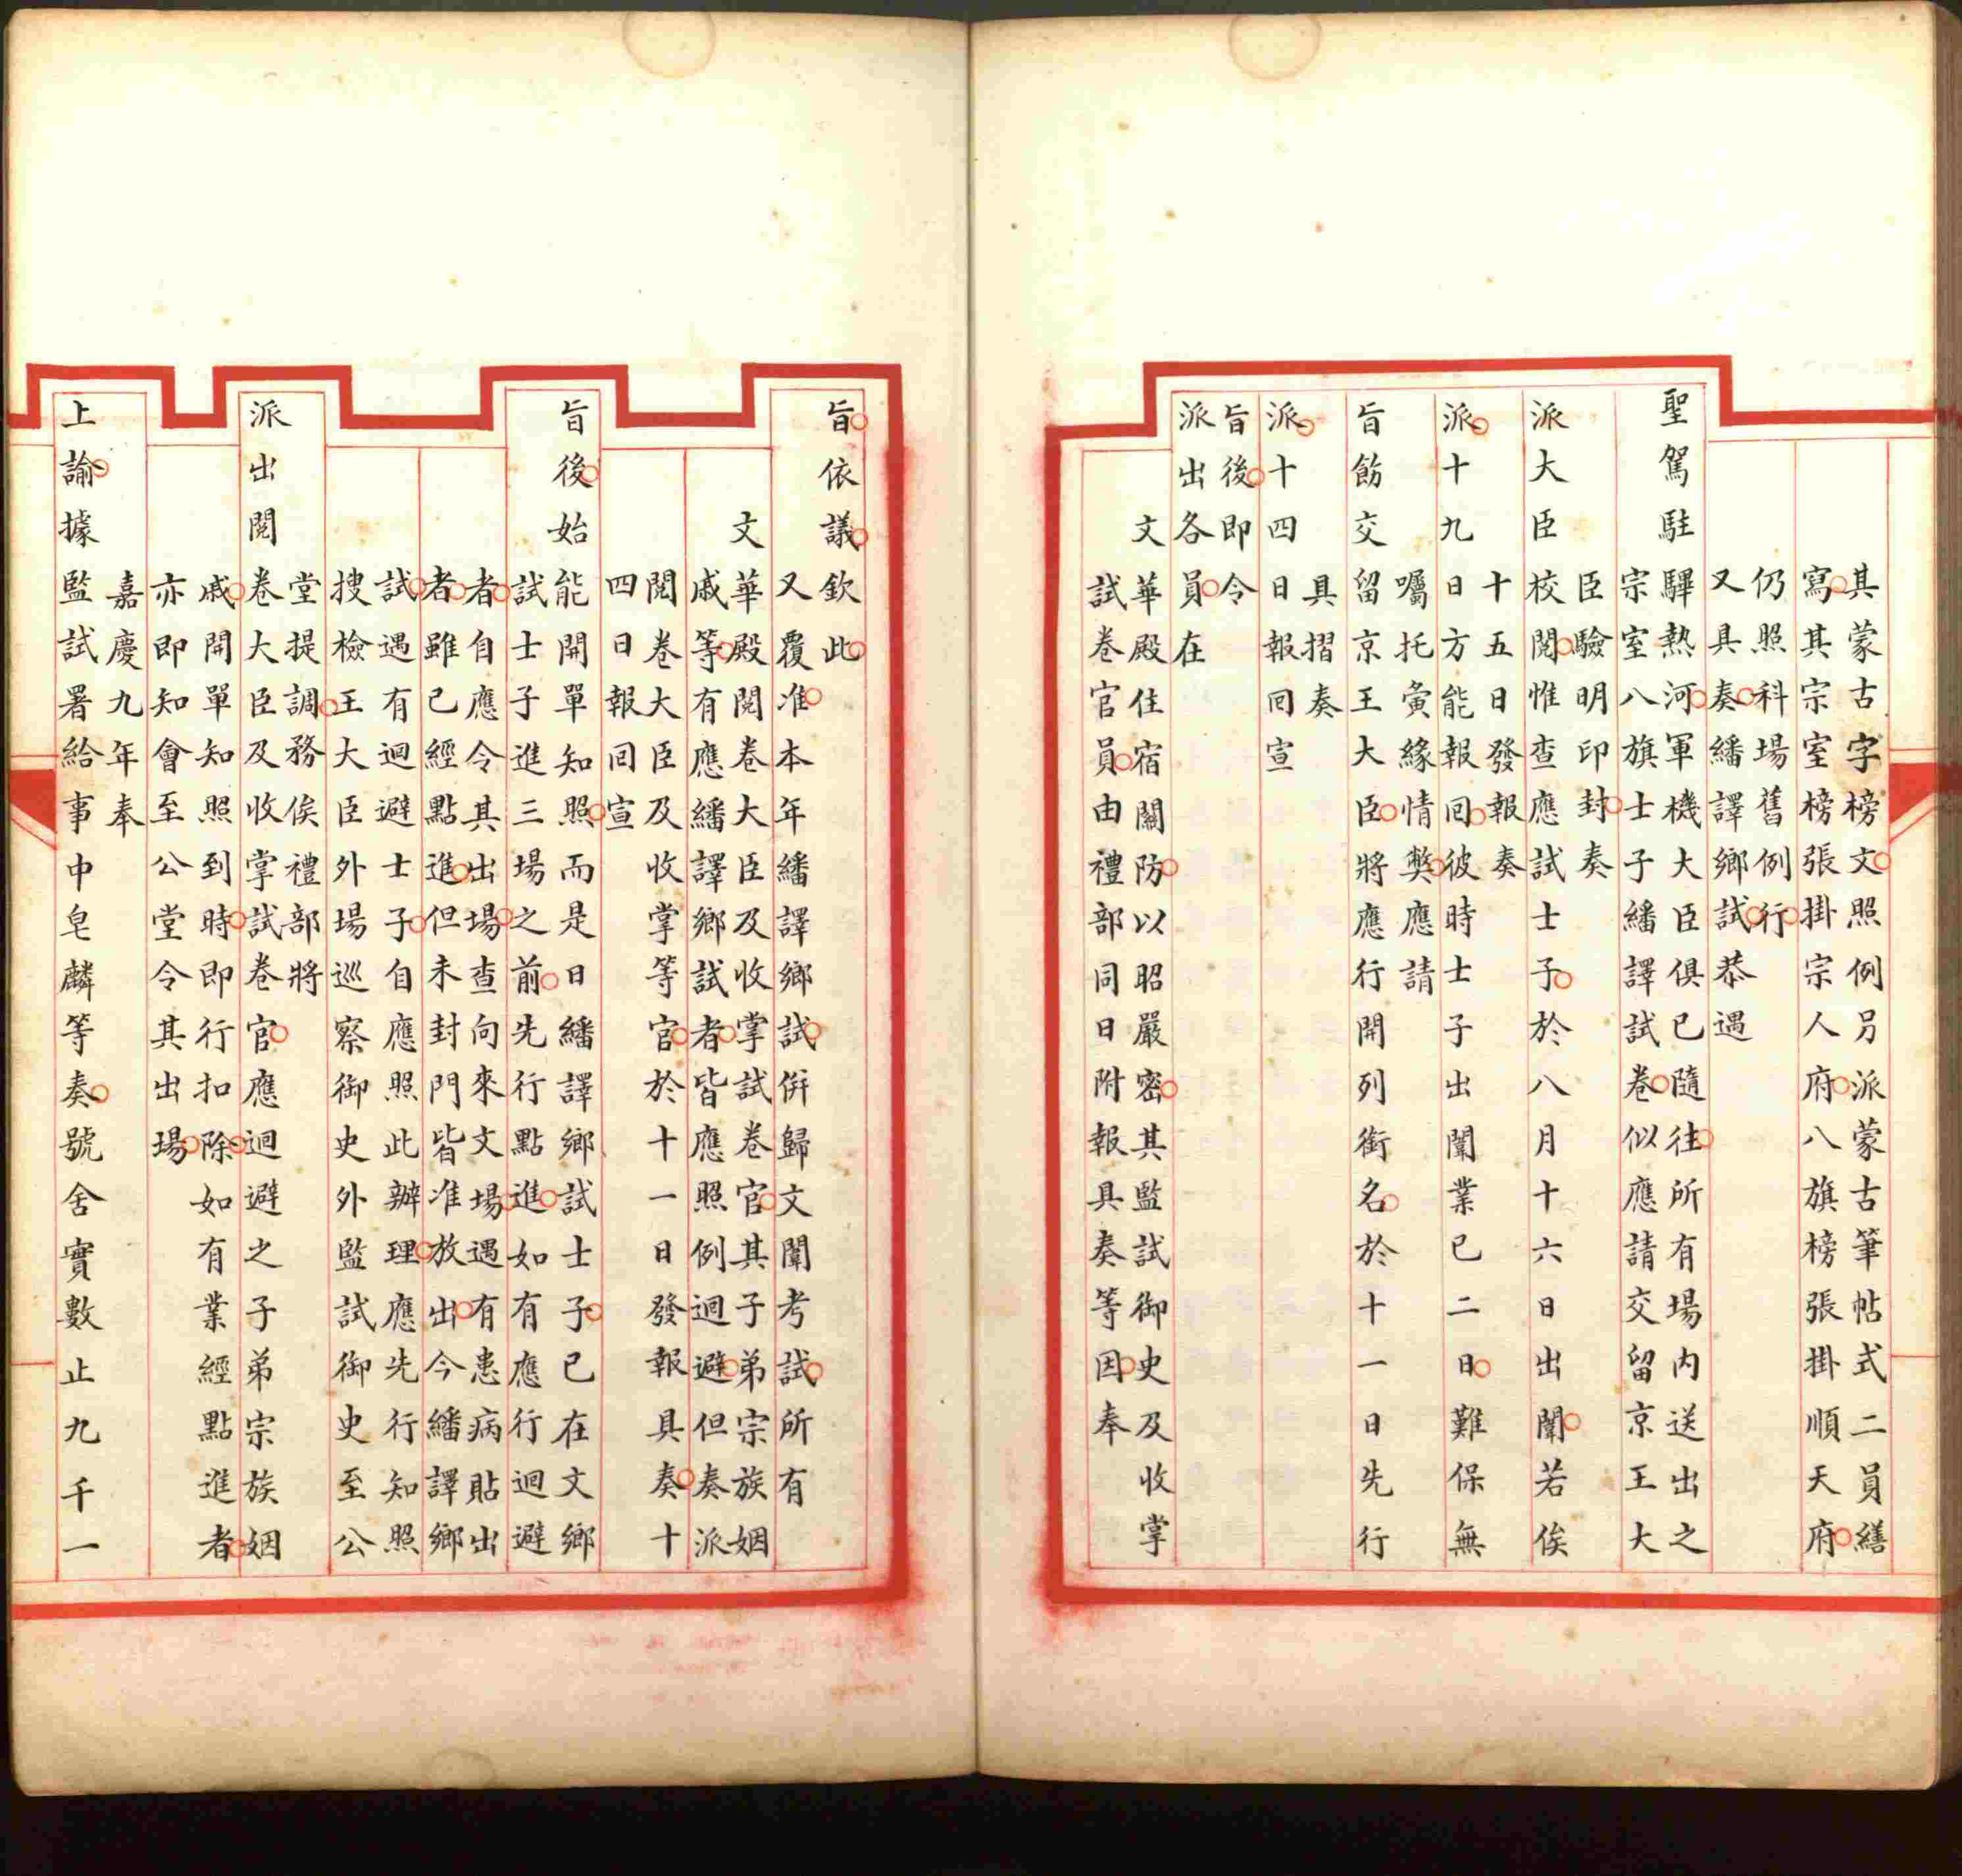 其蒙古字榜文照例另派蒙古筆帖式二員繕
寫其宗室榜張掛宗人府八旗榜張掛順天府
仍照科場舊例行
又具奏繙譯鄉試恭遇
聖駕駐驆熱河軍機大臣俱已隨往所有場內送出之
宗室八旗士子繙譯試卷似應請交留京王大
臣驗明印封奏
派大臣校閱惟查應試士子於八月十六日出闈若俟
十五日發報奏
派十九日方能報回彼時士子出闈業已二日難保無
囑托寅緣情弊應請
旨飭交留京王大臣將應行開列銜名於十一日先行
具摺奏
派十四日報回宣
旨後即令
派出各員在
文華殿住宿關防以昭嚴密其監試御史及收掌
試卷官員由禮部同日附報具奏等因奉
旨依議欽此
又覆准本年繙譯鄉試併歸文闈考試所有
文華殿閱卷大臣及收掌試卷官其子弟宗族姻
戚等有應繙譯鄉試者皆應照例迴避但奏派
閱卷大臣及收掌等官於十一日發報具奏十
四日報回宣
旨後始能開單知照而是日繙譯鄉試士子已在文鄉
試士子進三場之前先行點進如有應行迴避
者自應令其出場查向來文場遇有患病貼出
者雖已經點進但未封門皆准放出今繙譯鄉
試遇有迴避士子自應照此辦理應先行知照
搜檢王大臣外場巡察御史外監試御史至公
堂提調務俟禮部將
派出閱卷大臣及收掌試卷官應迴避之子弟宗族姻
戚開單知照到時即行扣除如有業經點進者
亦即知會至公堂令其出場
嘉慶九年奉
上諭據監試署給事中皂麟等奏號舍實數止九千一